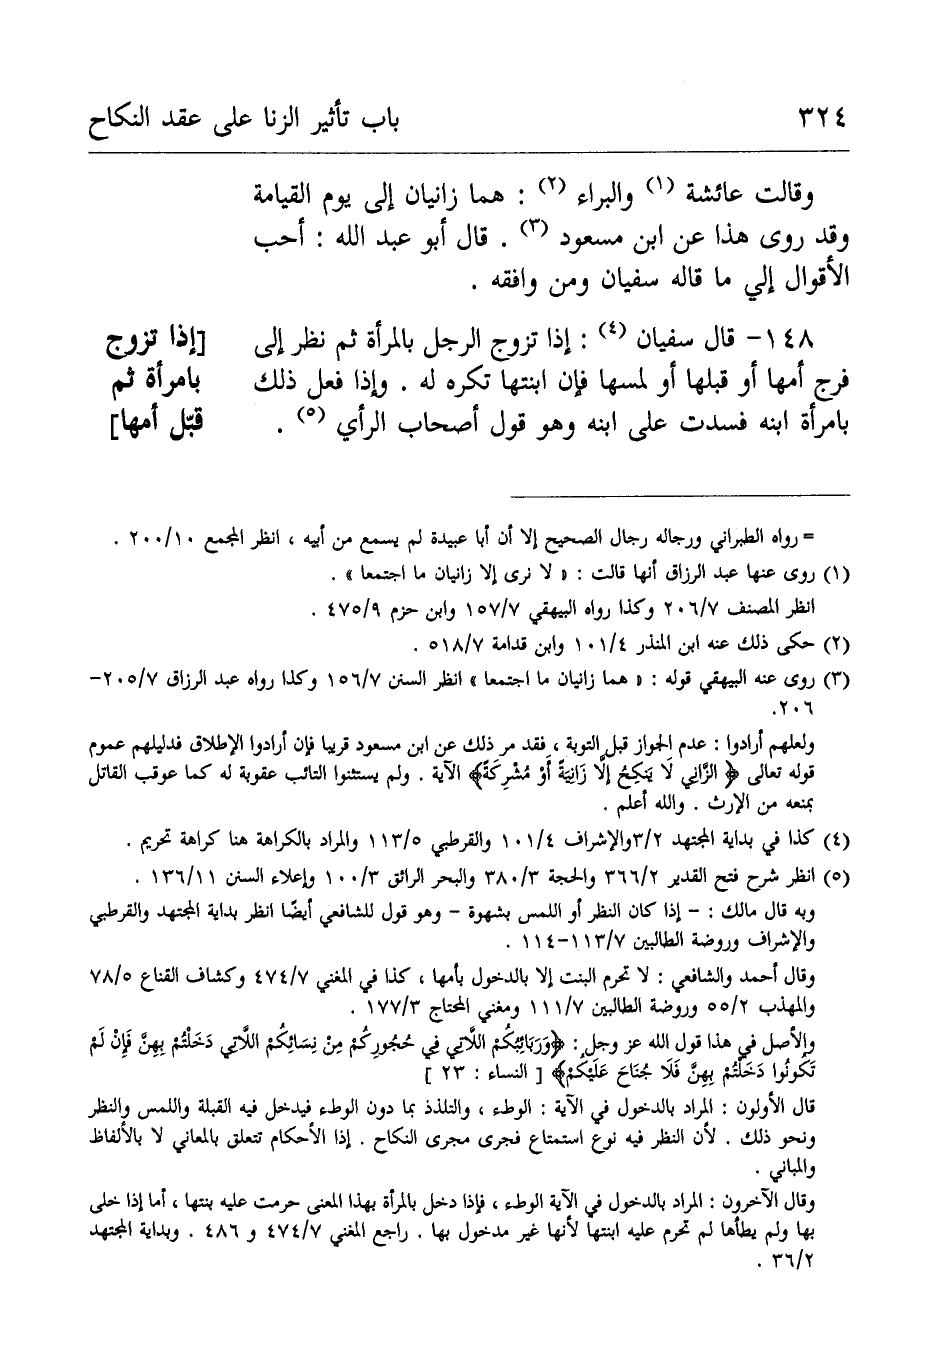 ٣٢٤ باب تأثير الزنا على عقد النكاح
وقالت عائشة (١) والبراء (٢) : هما زانيان إلى يوم القيامة
وقد روى هذا عن ابن مسعود (٣) . قال أبو عبد الله : أحب
الأقوال إلي ما قاله سفيان ومن وافقه .
١٤٨– قال سفيان (٤) : إذا تزوج الرجل بالمرأة ثم نظر إلى
فرج أمها أو قبلها أو لمسها فإن ابنتها تكره له . وإذا فعل ذلك
بامرأة ابنه فسدت على ابنه وهو قول أصحاب الرأي (٥) .
[إذا تزوج
بامرأة ثم
قبّل أمها]
= رواه الطبراني ورجاله رجال الصحيح إلا أن أبا عبيدة لم يسمع من أبيه ، انظر المجمع ٢٠٠/١٠ .
(١) روى عنها عبد الرزاق أنها قالت : « لا نرى إلا زانيان ما اجتمعا » .
انظر المصنف ٢٠٦/٧ وكذا رواه البيهقي ١٥٧/٧ وابن حزم ٤٧٥/٩ .
(٢) حكى ذلك عنه ابن المنذر ١٠١/٤ وابن قدامة ٥١٨/٧ .
(٣) روى عنه البيهقي قوله : « هما زانيان ما اجتمعا » انظر السنن ١٥٦/٧ وكذا رواه عبد الرزاق ٢٠٥/٧–
٢٠٦.
ولعلهم أرادوا : عدم الجواز قبل التوبة ، فقد مر ذلك عن ابن مسعود قريبا فإن أرادوا الإطلاق فدليلهم عموم
قوله تعالى ﴿ الزَّانِي لَا يَنكِحُ إِلَّا زَانِيَةً أَوْ مُشْرِكَةً﴾ الآية . ولم يستثنوا التائب عقوبة له كما عوقب القاتل
بمنعه من الإرث . والله أعلم .
(٤) كذا في بداية المجتهد ٣/٢والإشراف ١٠١/٤ والقرطبي ١١٣/٥ والمراد بالكراهة هنا كراهة تحريم .
(٥) انظر شرح فتح القدير ٣٦٦/٢ والحجة ٣٨٠/٣ والبحر الرائق ١٠٠/٣ وإعلاء السنن ١٣٦/١١ .
وبه قال مالك : – إذا كان النظر أو اللمس بشهوة – وهو قول للشافعي أيضًا انظر بداية المجتهد والقرطبي
والإشراف وروضة الطالبين ١١٣/٧–١١٤ .
وقال أحمد والشافعي : لا تحرم البنت إلا بالدخول بأمها ، كذا في المغني ٤٧٤/٧ وكشاف القناع ٧٨/٥
والمهذب ٥٥/٢ وروضة الطالبين ١١١/٧ ومغني المحتاج ١٧٧/٣ .
والأصل في هذا قول الله عز وجل : ﴿وَرَبَائِبُكُمْ اللَّاتِي فِي حُجُورِكُمْ مِنْ نِسَائِكُمْ اللَّاتِي دَخَلْتُمْ بِهِنَّ فَإِنْ لَمْ
تَكُونُوا دَخَلْتُمْ بِهِنَّ فَلَا جُنَاحَ عَلَيْكُمْ﴾ [ النساء : ٢٣ ]
قال الأولون : المراد بالدخول في الآية : الوطء ، والتلذذ بما دون الوطء فيدخل فيه القبلة واللمس والنظر
ونحو ذلك . لأن النظر فيه نوع استمتاع فجرى مجرى النكاح . إذا الأحكام تتعلق بالمعاني لا بالألفاظ
والمباني .
وقال الآخرون : المراد بالدخول في الآية الوطء ، فإذا دخل بالمرأة بهذا المعنى حرمت عليه بنتها ، أما إذا خلى
بها ولم يطأها لم تحرم عليه ابنتها لأنها غير مدخول بها . راجع المغني ٤٧٤/٧ و ٤٨٦ . وبداية المجتهد
٣٦/٢ .